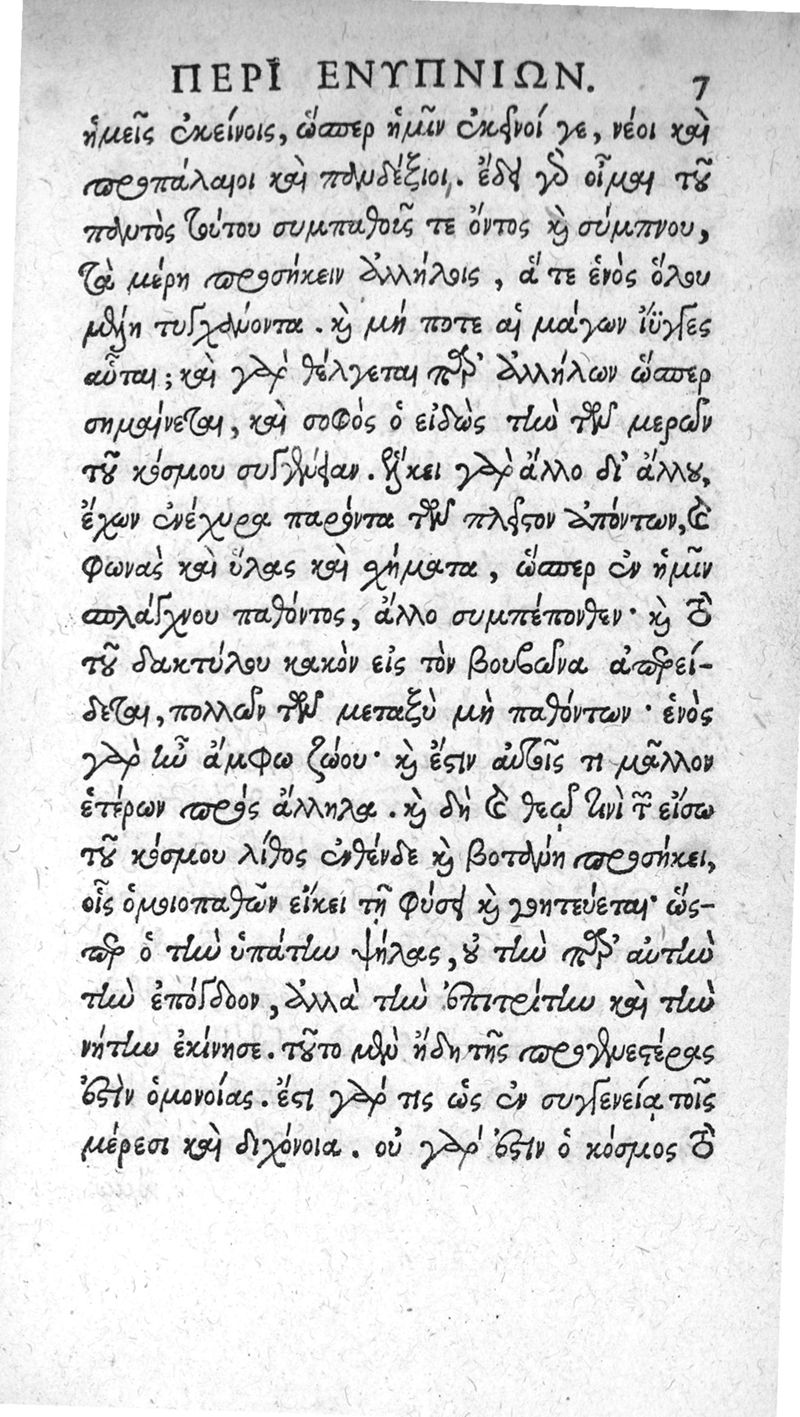 ΠΕΡΙ ΕΝΥΠΝΙΩΝ. 7
ἡμεῖς ἐκείνοις, ὥσπερ ἡμῖν ἐκεῖνοί γε, νέοι καὶ
προπάλαιοι καὶ πανδέξιοι. ἔδει γὰρ οἶμαι τοῦ
παντὸς τούτου συμπαθοῦς τε ὄντος καὶ σύμπνου,
τὰ μέρη προσήκειν ἀλλήλοις, ἅ τε ἑνὸς ὅλου
μέλη τυγχάνοντα. καὶ μή ποτε αἱ μάγων ἴϋγγες
αὗται; καὶ γὰρ θέλγεται παρ' ἀλλήλων ὥσπερ
σημαίνεται, καὶ σοφὸς ὁ εἰδὼς τὴν τῶν μερῶν
τοῦ κόσμου συγγένειαν. ἕλκει γὰρ ἄλλο δι' ἄλλου,
ἔχων ἐνέχυρα παρόντα τῶν πλεῖστον ἀπόντων, καὶ
φωνὰς καὶ ὕλας καὶ σχήματα, ὥσπερ ἐν ἡμῖν
σπλάγχνου παθόντος, ἄλλο συμπέπονθεν· καὶ τὸ
τοῦ δακτύλου κακὸν εἰς τὸν βουβῶνα ἀπερεί-
δεται, πολλῶν τῶν μεταξὺ μὴ παθόντων· ἑνὸς
γὰρ ἦν ἄμφω ζώου· καὶ ἔστιν αὐτοῖς τι μᾶλλον
ἑτέρων πρὸς ἄλληλα. καὶ δὴ καὶ θεῷ τινὶ τῶν εἴσω
τοῦ κόσμου λίθος ἐνθένδε καὶ βοτάνη προσήκει,
οἷς ὁμοιοπαθῶν εἴκει τῇ φύσει καὶ γοητεύεται· ὥς-
περ ὁ τὴν ὑπάτην ψήλας, οὐ τὴν παρ' αὐτὴν
τὴν ἐπόγδοον, ἀλλὰ τὴν ἐπιτρίτην καὶ τὴν
νήτην ἐκίνησε. τοῦτο μὲν ἤδη τῆς προγενεστέρας
ἐστὶν ὁμονοίας. ἔστι γάρ τις ὡς ἐν συγγενείᾳ τοῖς
μέρεσι καὶ διχόνοια. οὐ γάρ ἐστιν ὁ κόσμος τὸ